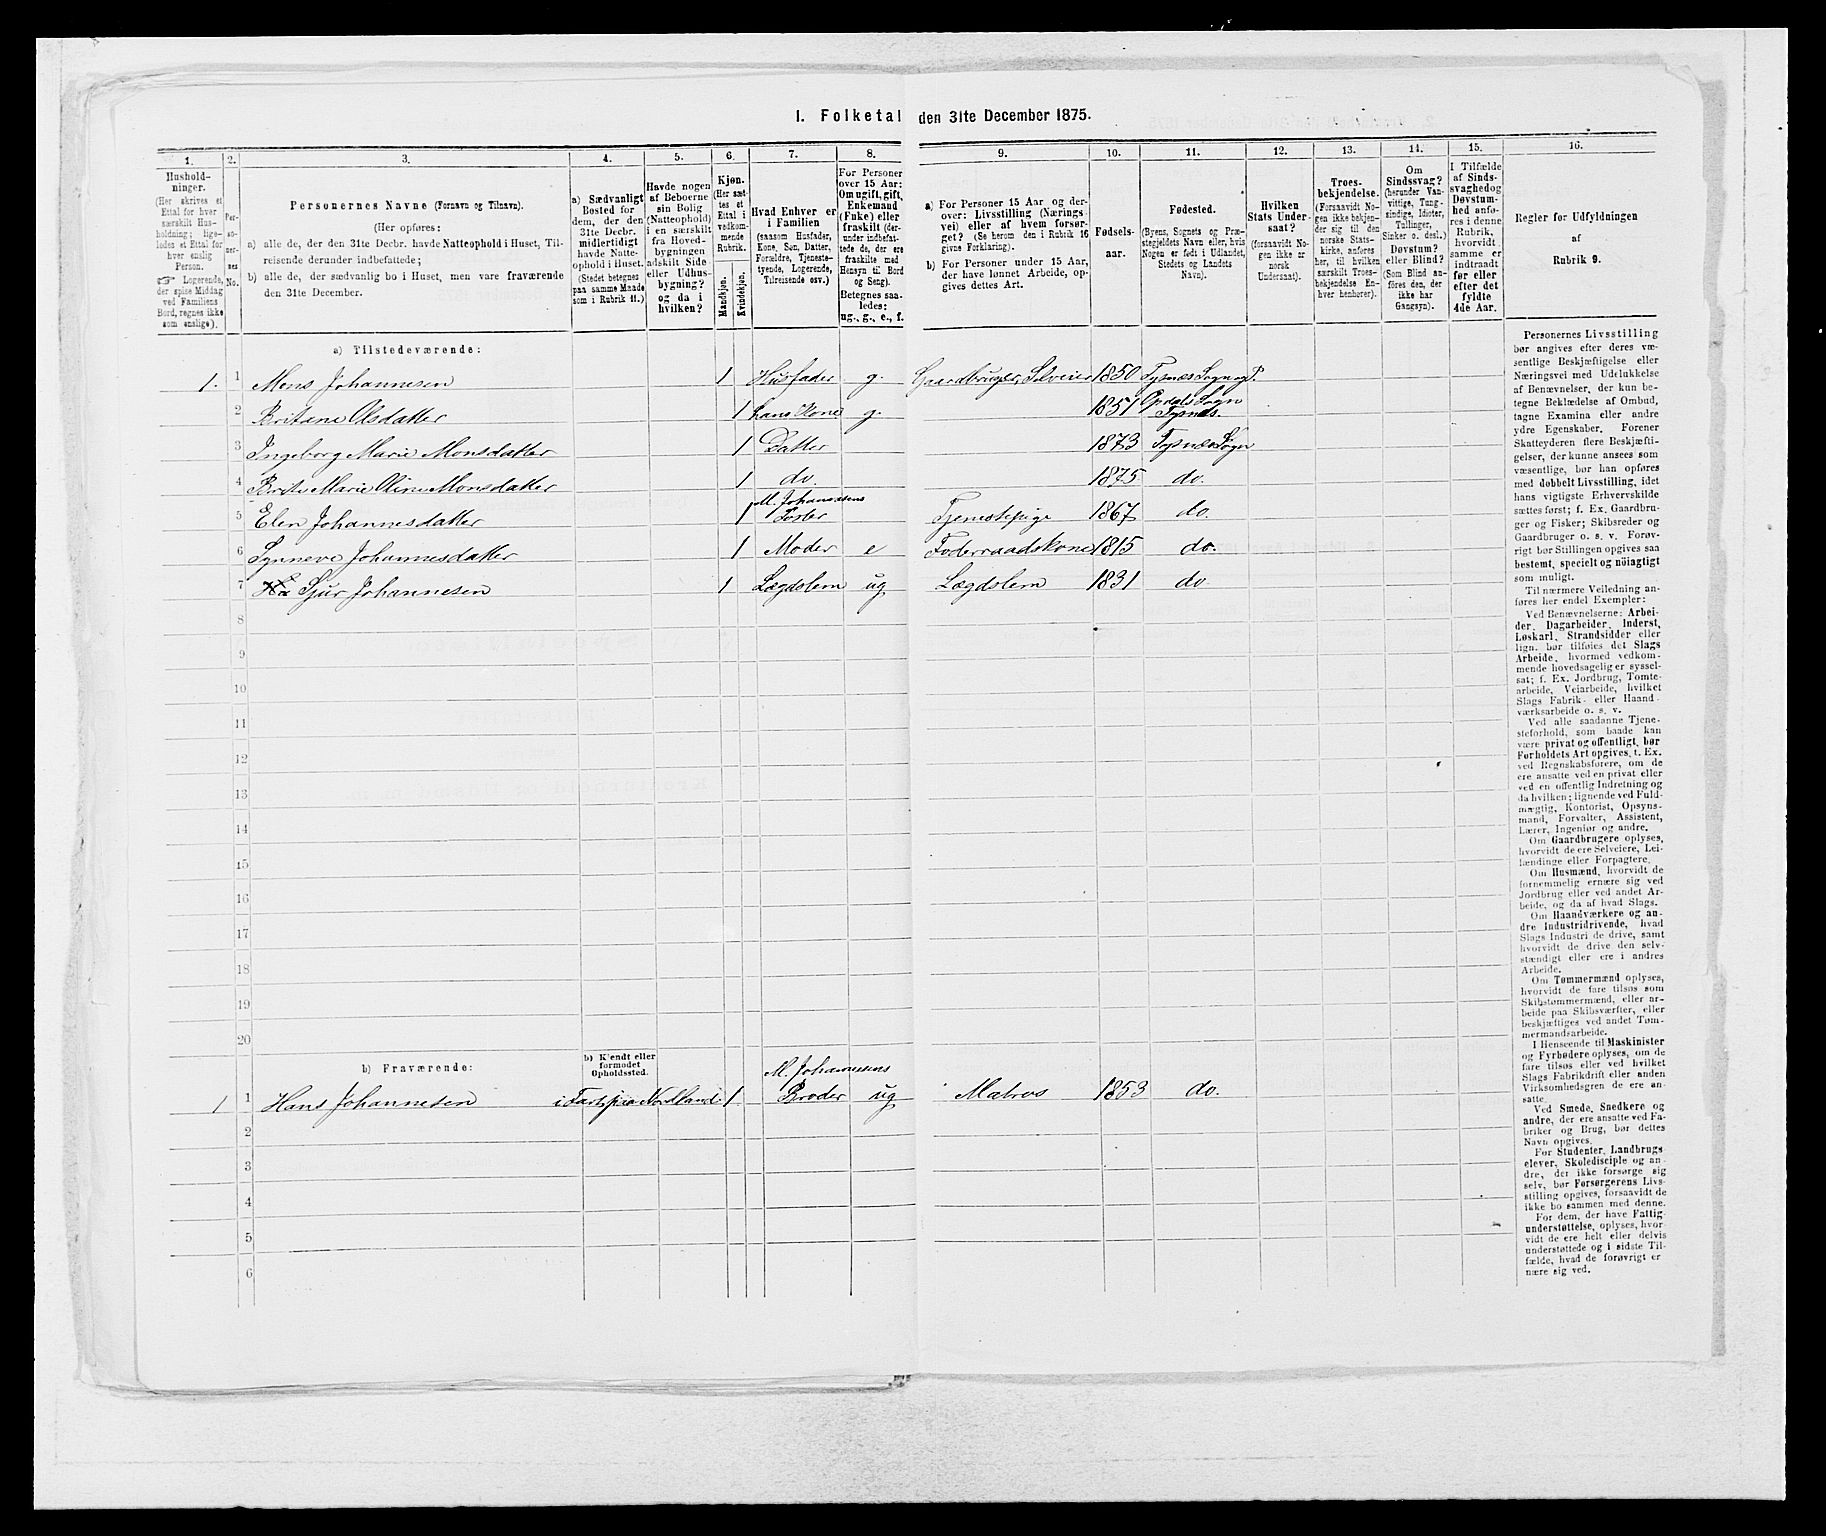 1. Folketal den 31te December 1875.
1. 2. 3. 4. 5. 6. 7. 8. 9. 10. 11. 12. 13. 14. 15. 16.
Hushold-
ninger.
(Her skrives et
Ettal for hver
særskilt Hus-
holdning; lige-
ledes et Ettal for
hver enslig
Person.
☞ Logerende,
der spise Middag
ved Familiens
Bord, regnes ikke
som enslige).
Per-
so-
ner-
nes
No.
Personernes Navne (Fornavn og Tilnavn).
(Her opføres:
a) alle de, der den 31te Decbr. havde Natteophold i Huset, Til-
reisende derunder indbefattede;
b) alle de, der sædvanlig bo i Huset, men vare fraværende
den 31te Decbr.
a) Sædvanligt
Bosted for
dem, der den
31te Decbr.
midlertidigt
havde Natte-
ophold i Huset.
(Stedet betegnes
paa samme Maade
som i Rubrik 11.)
Havde nogen
af Beboerne
sin Bolig
(Natteophold)
i en særskilt
fra Hoved-
bygningen
adskilt Side
eller Udhus-
bygning?
og da i
hvilken?
Kjøn.
(Her sæt-
tes et
Ettal i
vedkom-
mende
Rubrik.
Mandkjøn.
Kvindekjøn.
Hvad Enhver er
i Familien
(saasom Husfader,
Kone, Søn, Datter,
Forældre, Tjeneste-
tyende, Logerende,
Tilreisende osv.)
For Personer
over 15 Aar:
Om ugift, gift,
Enkemand
(Enke) eller
fraskilt (der-
under indbefat-
tede de, der ere
fraskilte med
Hensyn til Bord
og Seng).
Betegnes saa-
ledes:
ug., g., e., f.
a) For Personer 15 Aar og der-
over: Livsstilling (Nærings-
vei) eller af hvem forsør-
get? (Se herom den i Rubrik 16
givne Forklaring).
b) For Personer under 15 Aar,
der have lønnet Arbeide, op-
gives dettes Art.
Fødsels-
aar.
Fødested.
(Byens, Sognets og Præ-
stegjeldets Navn eller, hvis
Nogen er født i Udlandet,
Stedets og Landets
Navn).
Hvilken
Stats Under-
saat?
(forsaavidt No-
gen ikke er
norsk
Undersaat).
Troes-
bekjendelse.
(Forsaavidt No-
gen ikke bekjen-
der sig til den
norske Stats-
kirke, anføres
her, til hvilken
særskilt Troes-
bekjendelse En-
hver henhører).
Om
Sindssvag?
(herunder Van-
vittige, Tung-
sindige, Idioter,
Tullinger,
Sinker o. desl.)
Døvstum?
eller Blind?
(Som Blind an-
føres den, der
ikke har
Gangsyn).
I Tilfælde
af Sinds-
svaghed og
Døvstum-
hed anfø-
res i denne
Rubrik,
hvorvidt
samme er
indtraadt
før eller
efter det
fyldte
4de Aar.
Regler for Udfyldningen
af
Rubrik 9.
a) Tilstedeværende:
1. 1 Mons Johannesen 1 Husfader g. Gaardbruger, Selveier 1850 Tysnes Sogn og P.
2 Britane Olsdatter 1 hans Kone g. 1851 Opdals Sogn Tysnes.
3 Ingeborg Marie Monsdatter 1 Datter 1873 Tysnes Sogn
4 Brite Marie Oline Monsdatter 1 do. 1875 do.
5 Elen Johannesdatter 1 M. Johannesens Søster Tjenestepige 1867 do.
6 Synneve Johannesdatter 1 Moder e Foderraadskone 1815 do.
7 Sjur Johannesen 1 Lægdslem ug Lægdslem 1831 do
8
9
10
11
12
13
14
15
16
17
18
19
20
b) Fraværende:
b) Kjendt eller
formodet
Opholdssted.
1 1 Hans Johannesen i Fart paa Nordland 1 M. Johannesens Broder ug Matros 1853 do.
2
3
4
5
6
Personernes Livsstilling
bør angives efter deres væ-
sentlige Beskjæftigelse eller
Næringsvei med Udelukkelse
af Benævnelser, der kun be-
tegne Beklædelse af Ombud,
tagne Examina eller andre
ydre Egenskaber. Forener
Skatteyderen flere Beskjæfti-
gelser, der kunne ansees som
væsentlige, bør han opføres
med dobbelt Livsstilling, idet
hans vigtigste Erhvervskilde
sættes først; f. Ex. Gaardbru-
ger og Fisker; Skibsreder og
Gaardbruger o. s. v. Forøv-
rigt bør Stillingen opgives saa
bestemt, specielt og nøiagtigt
som muligt.
Til nærmere Veiledning an-
føres her endel Exempler:
Ved Benævnelserne: Arbei-
der, Dagarbeider, Inderst,
Løskarl, Strandsidder eller
lign. bør tilføies det Slags
Arbeide, hvormed vedkom-
mende hovedsagelig er syssel-
sat; f. Ex. Jordbrug, Tomte-
arbeide, Veiarbeide, hvilket
Slags Fabrik- eller Haand-
værksarbeide o. s. v.
Ved alle saadanne Tjene-
steforhold, som baade kan
være privat og offentligt, bør
Forholdets Art opgives, t. Ex.
ved Regnskabsførere, om de
ere ansatte ved en privat eller
ved en offentlig Indretning og
da hvilken; lignende ved Fuld-
mægtig, Kontorist, Opsyns-
mand, Forvalter, Assistent,
Lærer, Ingeniør og andre.
Om Gaardbrugere oplyses,
hvorvidt de ere Selveiere, Lei-
lændinge eller Forpagtere.
Om Husmænd, hvorvidt de
fornemmelig ernære sig ved
Jordbrug eller ved andet Ar-
beide, og da af hvad Slags.
Om Haandværkere og an-
dre Industridrivende, hvad
Slags Industri de drive, samt
hvorvidt de drive den selv-
stændigt eller ere i andres
Arbeide.
Om Tømmermænd oplyses,
hvorvidt de fare tilsøs som
Skibstømmermænd, eller ar-
beide paa Skibsværfter, eller
beskjæftiges ved andet Tøm-
mermandsarbeide.
I Henseende til Maskinister
og Fyrbødere oplyses, om de
fare tilsøs eller ved hvilket
Slags Fabrikdrift eller anden
Virksomhedsgren de ere an-
satte.
Ved Smede, Snedkere og
andre, der ere ansatte ved Fa-
briker og Brug, bør dettes
Navn opgives.
For Studenter, Landbrugs-
elever, Skoledisciple og an-
dre, der ikke forsørge sig
selv, bør Forsørgerens Livs-
stilling opgives, forsaavidt de
ikke bo sammen med denne.
For dem, der have Fattig-
understøttelse, oplyses, hvor-
vidt de ere helt eller delvis
understøttede og i sidste Til-
fælde, hvad de forøvrigt er-
nære sig ved.